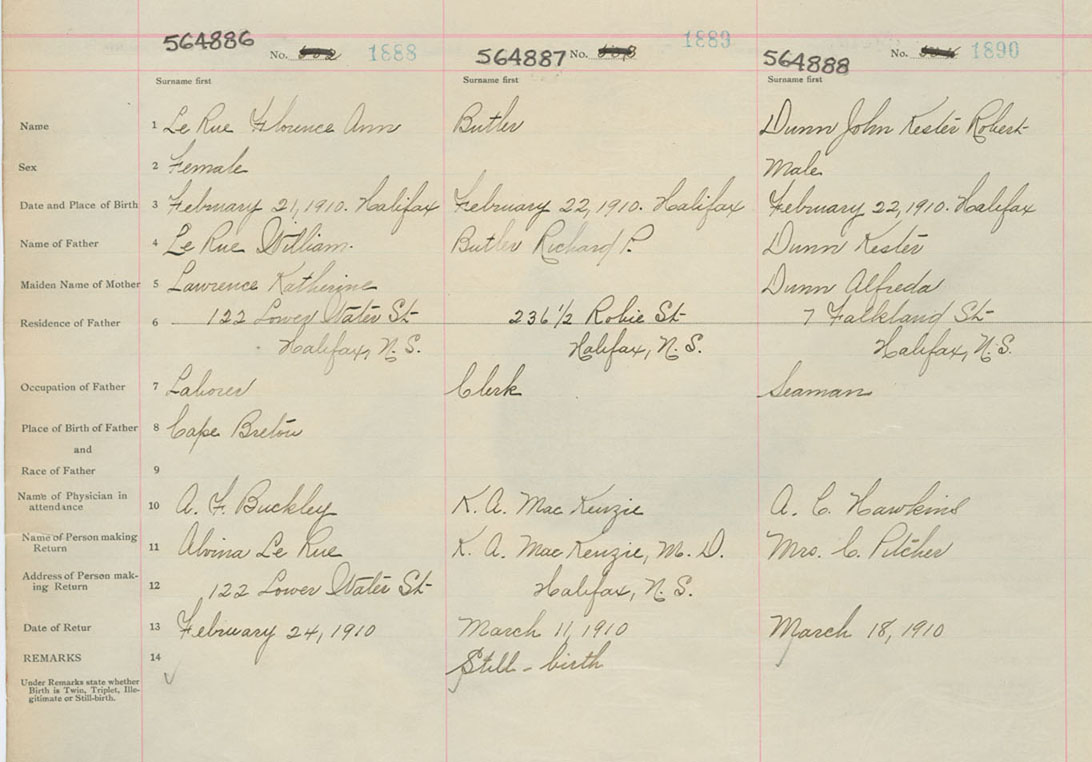 564886 No. 1888 564887 No. 1889 564888 No. 1890
Surname first Surname first Surname first
Name 1 Le Rue Florence Ann Butler Dunn John Kester Robert
Sex 2 Female Male
Date and Place of Birth 3 February 21, 1910. Halifax February 22, 1910. Halifax February 22, 1910. Halifax
Name of Father 4 Le Rue William. Butler Richard P. Dunn Kester
Maiden Name of Mother 5 Lawrence Katherine Dunn Alfreda
Residence of Father 6 122 Lower Water St 236 1/2 Robie St 7 Falkland St
Halifax, N.S. Halifax, N.S. Halifax, N.S.
Occupation of Father 7 Laborer Clerk Seaman
Place of Birth of Father 8 Cape Breton
and
Race of Father 9
Name of Physician in
attendance 10 A. F. Buckley K. A. Mac Kenzie A. C. Hawkins
Name of Person making
Return 11 Alvina Le Rue K. A. Mac Kenzie, M. D. Mrs. C. Pitcher
Address of Person mak-
ing Return 12 122 Lower Water St Halifax, N.S.
Date of Retur 13 February 24, 1910 March 11, 1910 March 18, 1910
REMARKS 14 Still-birth
Under Remarks state whether
Birth is Twin, Triplet, Ille-
gitimate or Still-birth.